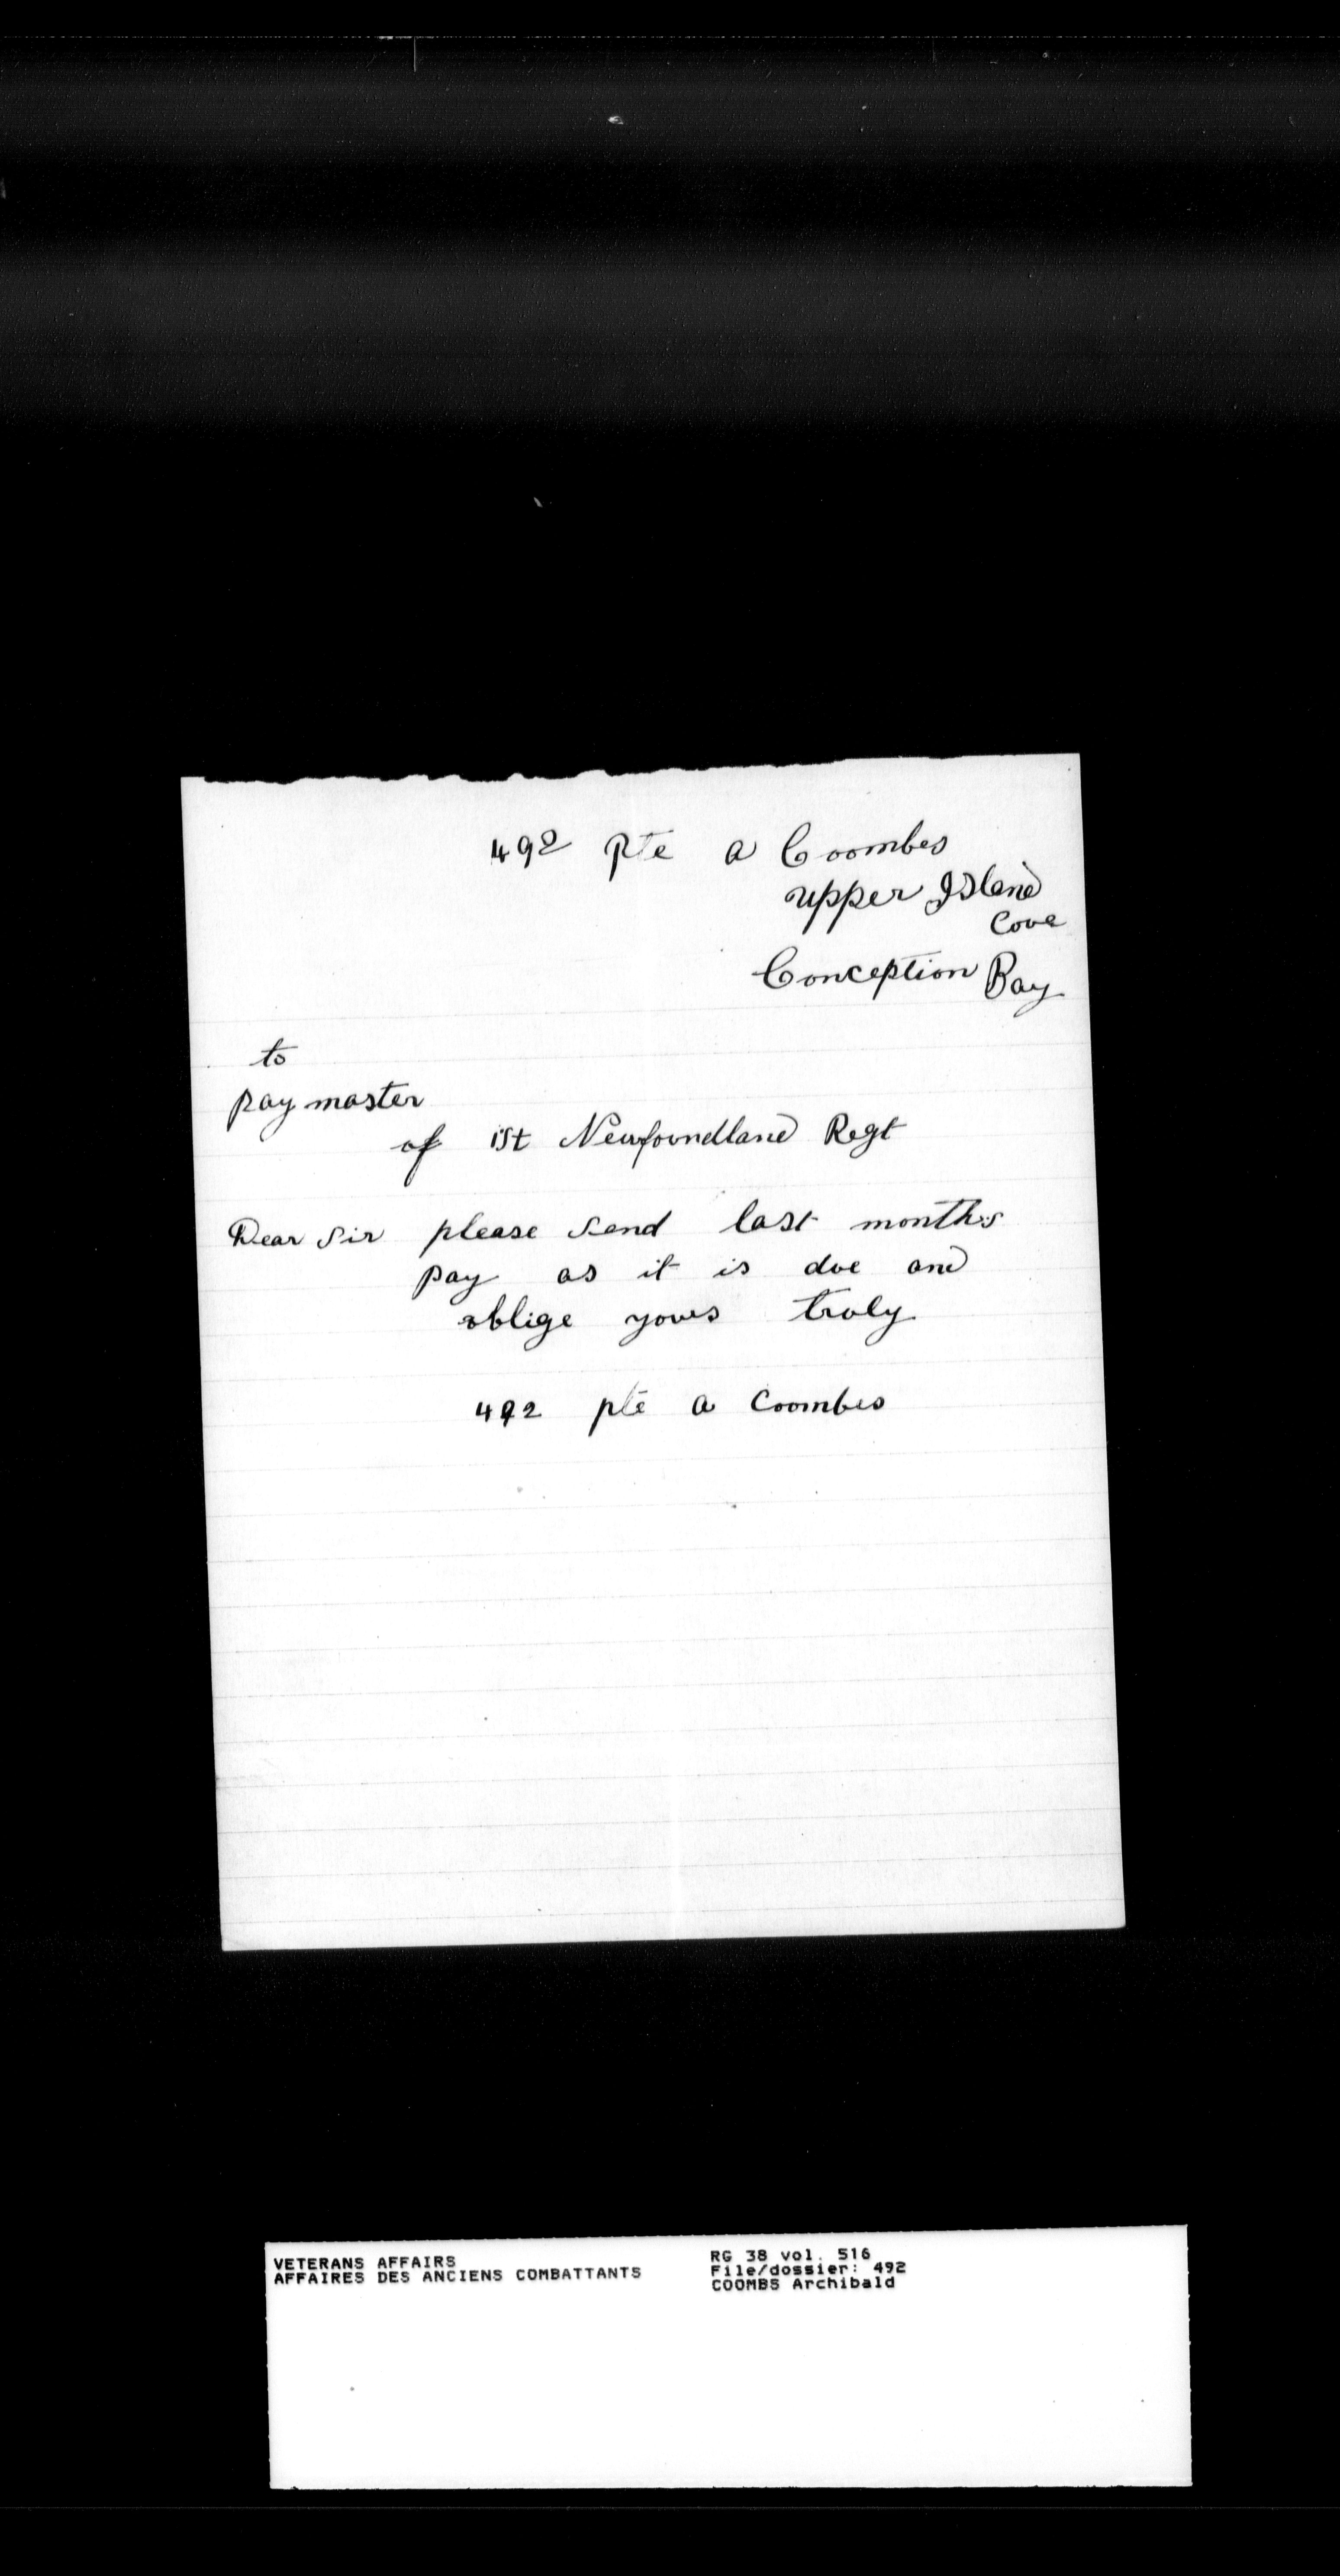 492 Pte A Coombes
upper Island
Cove
Conception Bay
to
pay master
of 1st Newfoundland Regt
Dear Sir please send last months
pay as it is due and
oblige yours truly
492 pte A Coombes
VETERANS AFFAIRS
AFFAIRES DES ANCIENS COMBATTANTS
RG 38 vol. 516
File/dossier: 492
COOMBS Archibald